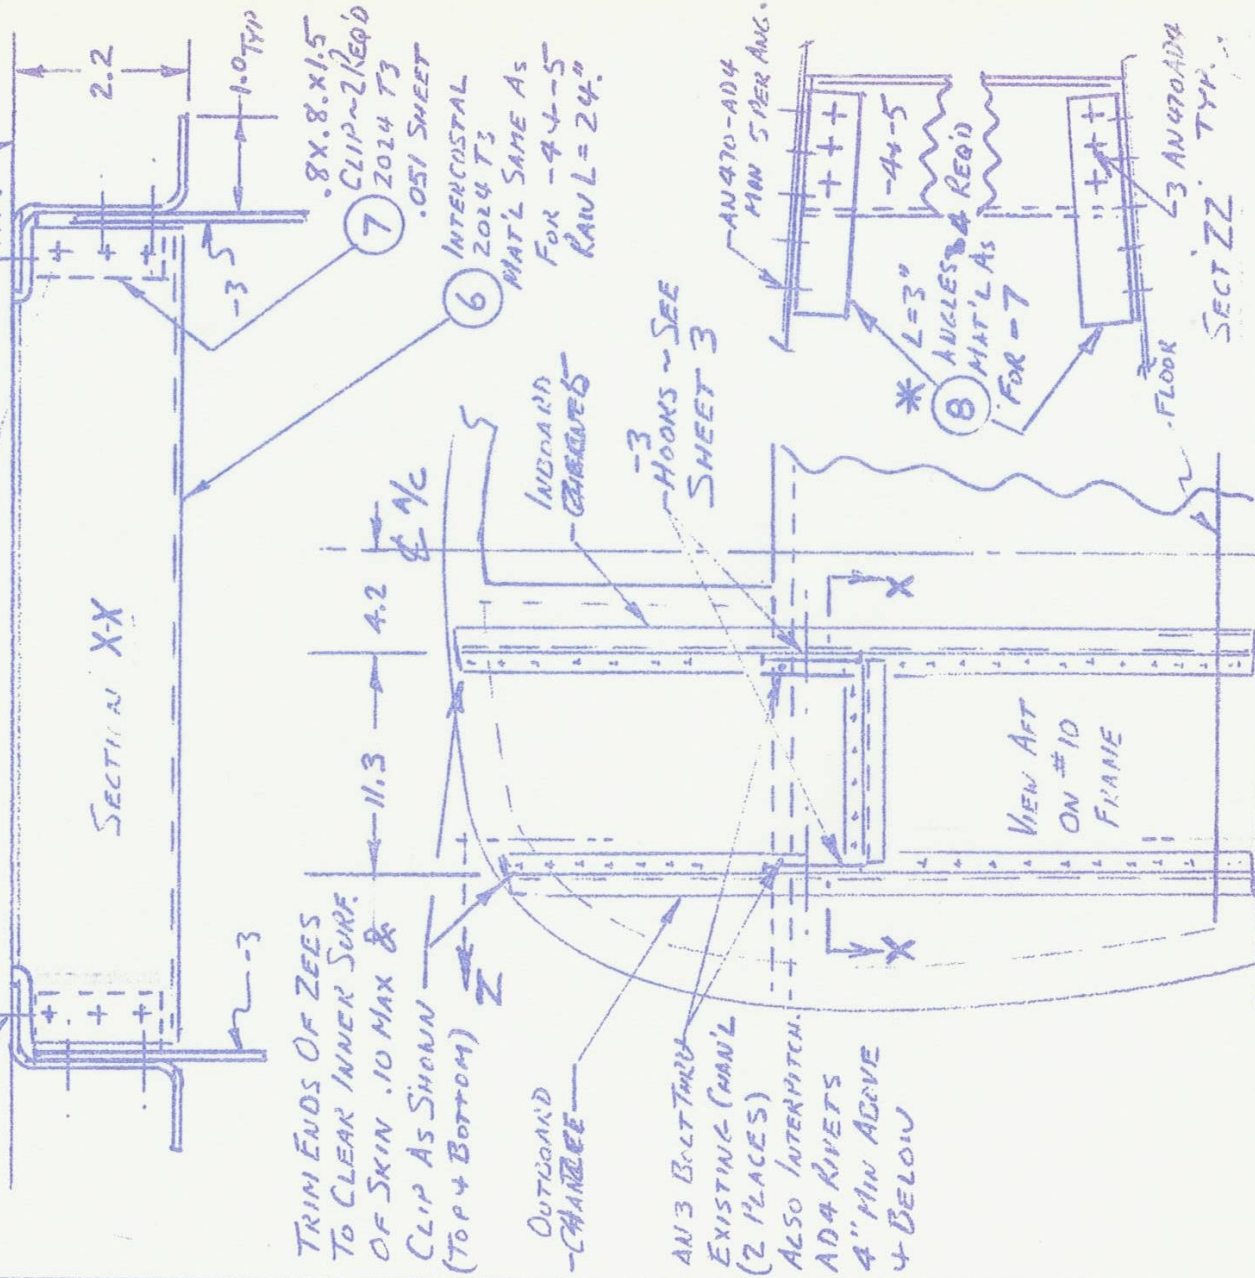 2.2
1.0 TYP
SECTION X-X
-3
-3
.8X.8.X1.5
CLIP~2 REQ'D
2024 T3
.051 SHEET
7
INTERCOSTAL
2024 T3
MAT'L SAME AS
FOR -4+-5
RAW L = 24"
6
TRIM ENDS OF ZEES
TO CLEAR INNER SURF.
OF SKIN .10 MAX &
CLIP AS SHOWN
(TOP & BOTTOM)
11.3
4.2
℄ A/C
INBOARD
-3
HOOKS ~ SEE
SHEET 3
Z
OUTBOARD
AN3 BOLT THRU
EXISTING CHAN'L
(2 PLACES)
ALSO INTERPITCH
AD4 RIVETS
4" MIN ABOVE
& BELOW
X
X
VIEW AFT
ON #10
FRAME
AN470-AD4
MIN 5 PER ANG.
-4+-5
* L=3"
ANGLES 4 REQ'D
MAT'L AS
FOR -7
8
3 AN470AD4
TYP.
FLOOR
SECT ZZ